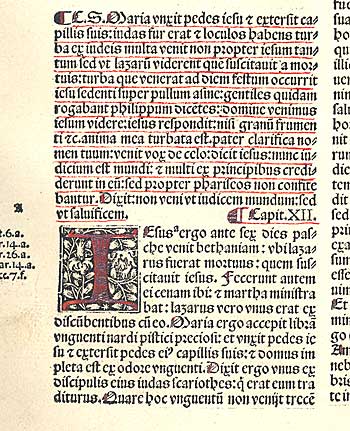 ¶C.S. Maria vnxit pedes iesu & extersit ca-
pillis suis: iudas fur erat & loculos habens tur-
ba ex iudeis multa venit non propter iesum tan-
tum sed vt lazarū viderent quē suscitauit a mor-
tuis: turba que venerat ad diem festum occurrit
iesu sedenti super pullum asine: gentiles quidam
rogabant philippum dicētes: domine venimus
iesum videre: iesus respondit: nisi granū frumen
ti &c. anima mea turbata est. pater clarifica no-
men tuum: venit vox de celo: dicit iesus: nunc iu
dicium est mundi: & multi ex principibus credi
derunt in eū: sed propter phariseos non confite
bantur. Dixit: non veni vt iudicem mundum: sed
vt saluificem. ¶Capit. XII.
IEsusª ergo ante sex dies pas-
che venit bethaniam: vbi laza-
rus fuerat mortuus: quem sus-
citauit iesus. Fecerunt autem
ei cenam ibi: & martha ministra
bat: lazarus vero vnus erat ex
discūbentibus cū eo. Maria ergo accepit librā
vnguenti nardi pistici p̄ciosi: et vnxit pedes ie
su & extersit pedes eiꝰ capillis suis: & domus im
pleta est ex odore vnguenti. Dixit ergo vnus ex
discipulis eius iudas scariothes: q̇ erat eum tra
diturus. Quare hoc vnguentū non venijt trecē
A
t.6.a.
ar.14.a.
t.26.a.
ar.14.a.
c.7.f.